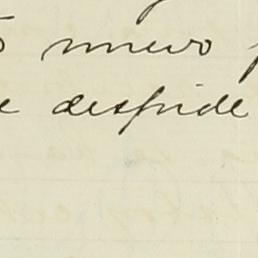 nuevo
e despide